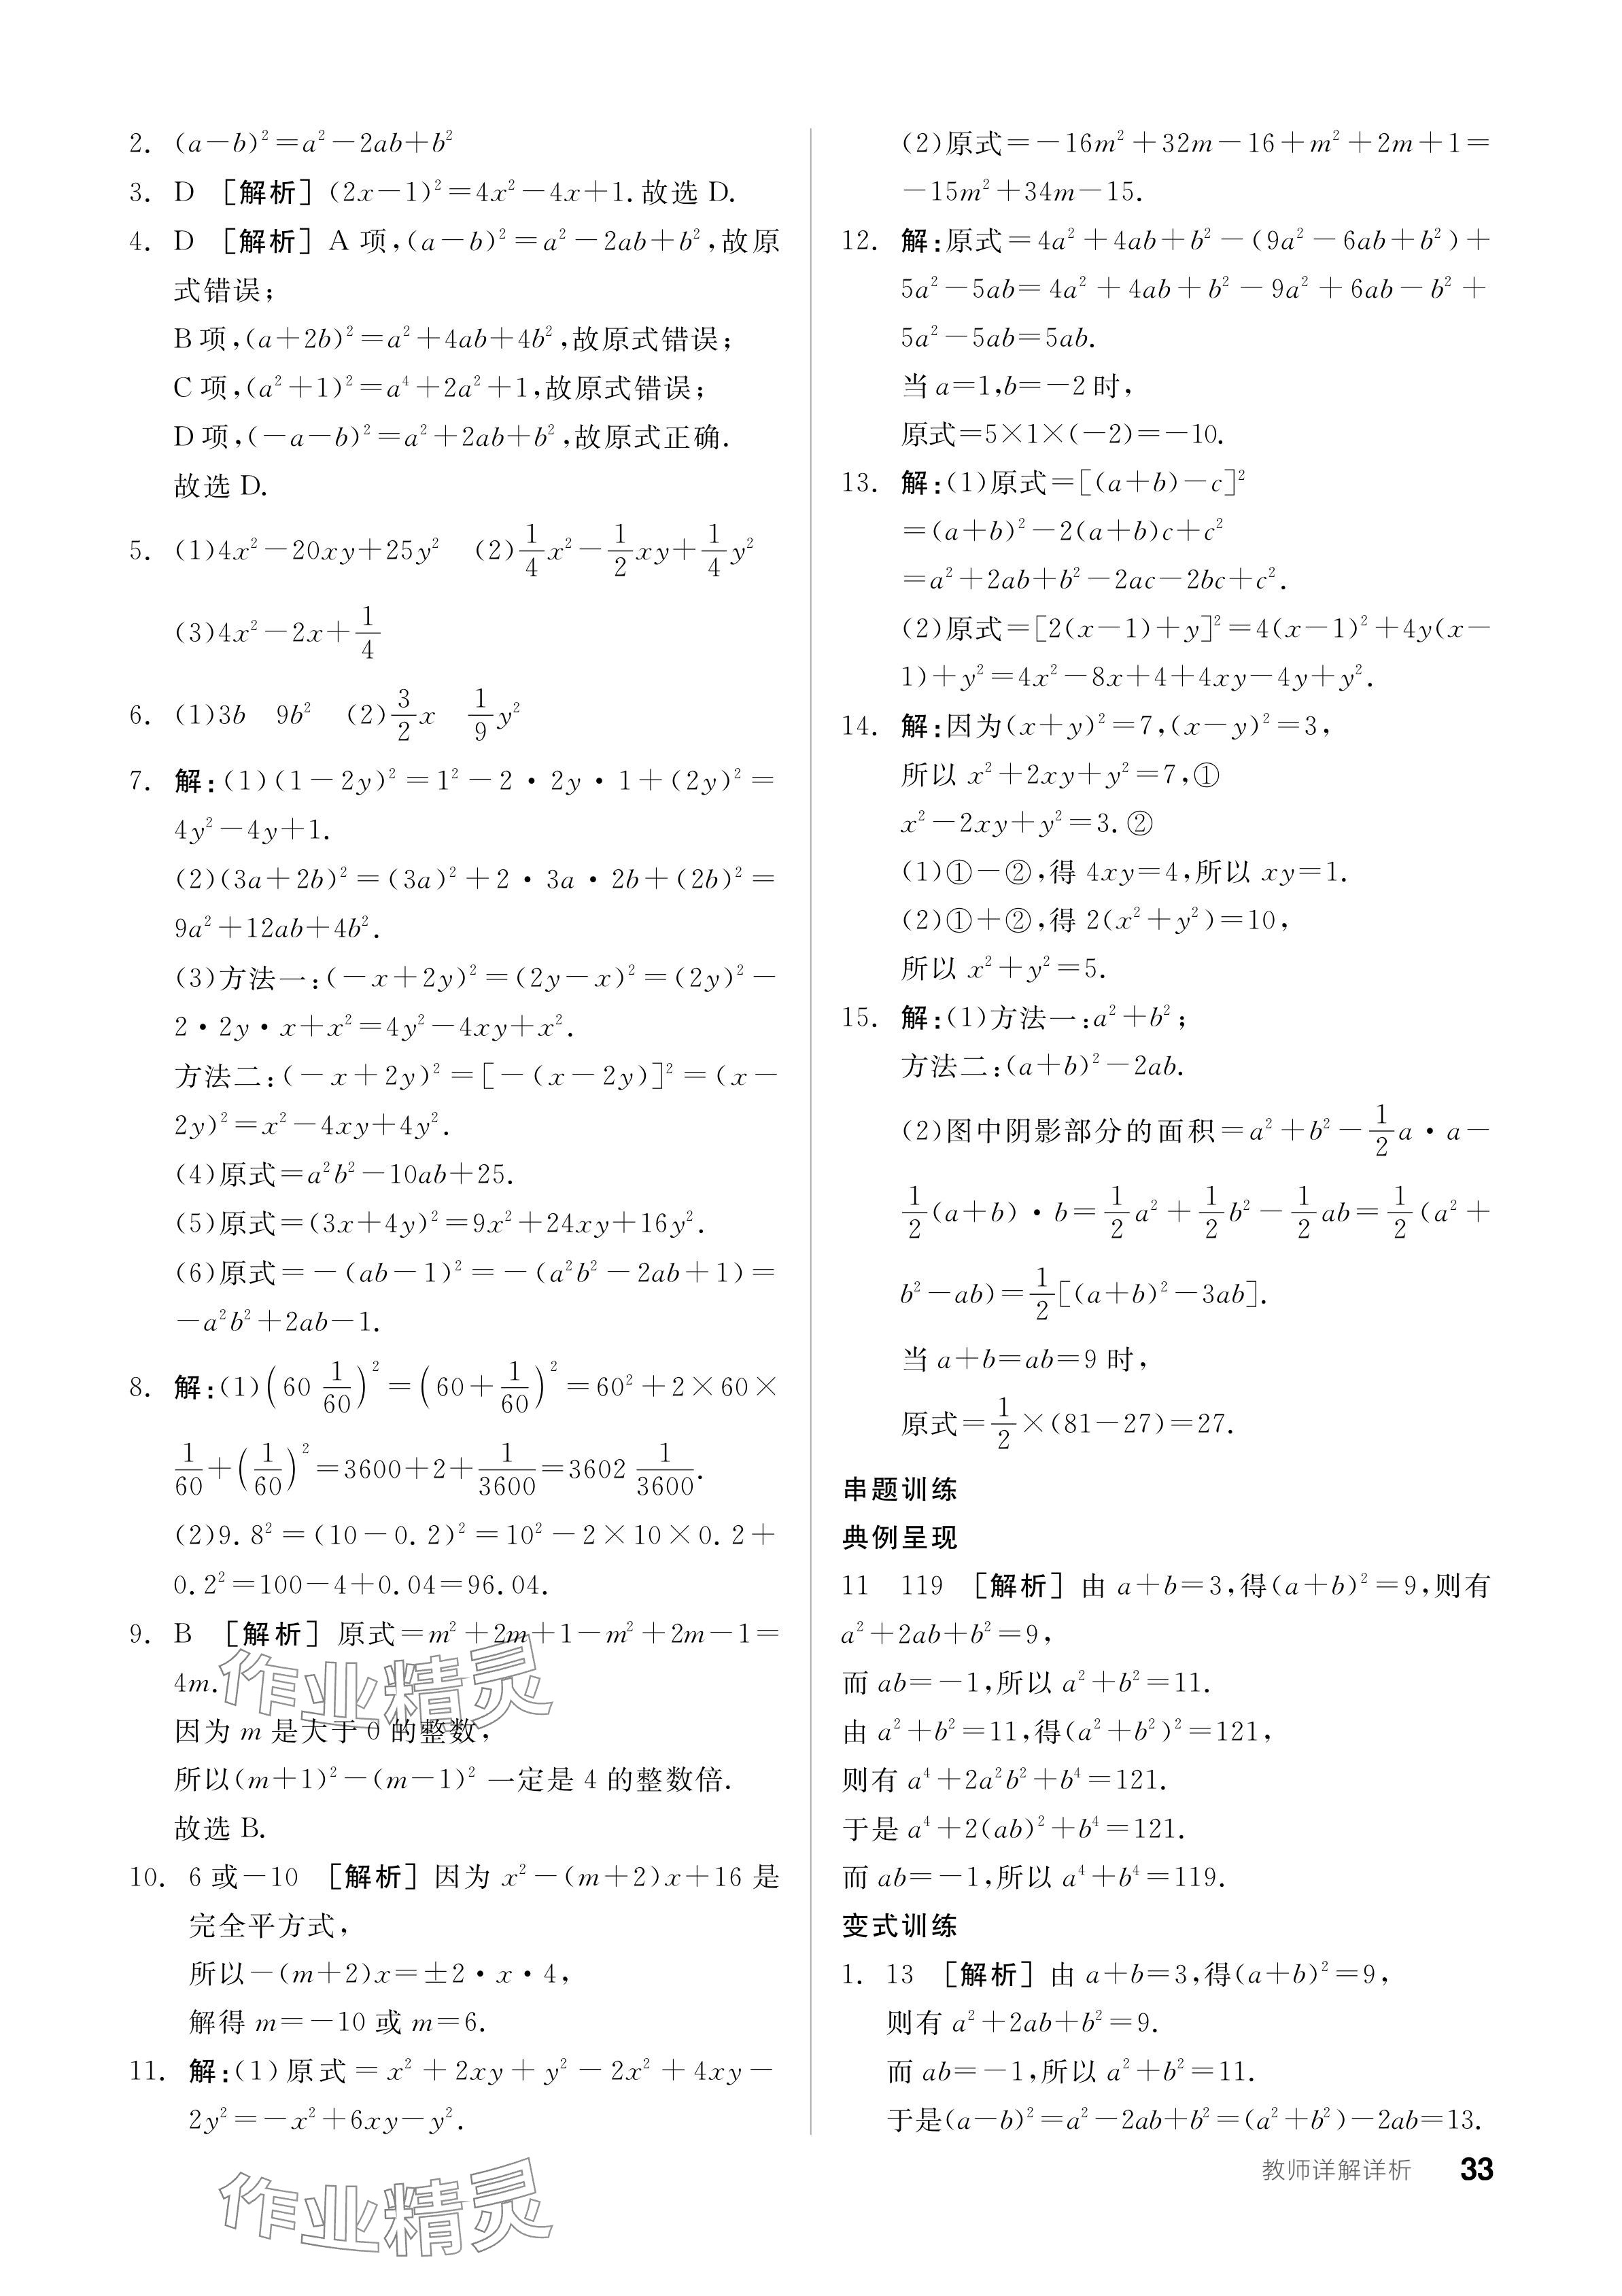 2. (a-b)²=a²-2ab+b²
3. D [解析] (2x-1)²=4x²-4x+1.故选 D.
4. D [解析] A 项,(a-b)²=a²-2ab+b²,故原
式错误;
B 项,(a+2b)²=a²+4ab+4b²,故原式错误;
C 项,(a²+1)²=a⁴+2a²+1,故原式错误;
D 项,(-a-b)²=a²+2ab+b²,故原式正确.
故选 D.
5. (1)4x²-20xy+25y² (2)1/4x²-1/2xy+1/4y²
(3)4x²-2x+1/4
6. (1)3b 9b² (2)3/2x 1/9y²
7. 解:(1)(1-2y)²=1²-2·2y·1+(2y)²=
4y²-4y+1.
(2)(3a+2b)²=(3a)²+2·3a·2b+(2b)²=
9a²+12ab+4b².
(3)方法一:(-x+2y)²=(2y-x)²=(2y)²-
2·2y·x+x²=4y²-4xy+x².
方法二:(-x+2y)²=[-(x-2y)]²=(x-
2y)²=x²-4xy+4y².
(4)原式=a²b²-10ab+25.
(5)原式=(3x+4y)²=9x²+24xy+16y².
(6)原式=-(ab-1)²=-(a²b²-2ab+1)=
-a²b²+2ab-1.
8. 解:(1)(60 1/60)²=(60+1/60)²=60²+2×60×
1/60+(1/60)²=3600+2+1/3600=3602 1/3600.
(2)9.8²=(10-0.2)²=10²-2×10×0.2+
0.2²=100-4+0.04=96.04.
9. B [解析] 原式=m²+2m+1-m²+2m-1=
4m.
因为 m 是大于 0 的整数,
所以(m+1)²-(m-1)² 一定是 4 的整数倍.
故选 B.
10. 6 或-10 [解析] 因为 x²-(m+2)x+16 是
完全平方式,
所以-(m+2)x=±2·x·4,
解得 m=-10 或 m=6.
11. 解:(1)原式=x²+2xy+y²-2x²+4xy-
2y²=-x²+6xy-y².
(2)原式=-16m²+32m-16+m²+2m+1=
-15m²+34m-15.
12. 解:原式=4a²+4ab+b²-(9a²-6ab+b²)+
5a²-5ab=4a²+4ab+b²-9a²+6ab-b²+
5a²-5ab=5ab.
当 a=1,b=-2 时,
原式=5×1×(-2)=-10.
13. 解:(1)原式=[(a+b)-c]²
=(a+b)²-2(a+b)c+c²
=a²+2ab+b²-2ac-2bc+c².
(2)原式=[2(x-1)+y]²=4(x-1)²+4y(x-
1)+y²=4x²-8x+4+4xy-4y+y².
14. 解:因为(x+y)²=7,(x-y)²=3,
所以 x²+2xy+y²=7,①
x²-2xy+y²=3.②
(1)①-②,得 4xy=4,所以 xy=1.
(2)①+②,得 2(x²+y²)=10,
所以 x²+y²=5.
15. 解:(1)方法一:a²+b²;
方法二:(a+b)²-2ab.
(2)图中阴影部分的面积=a²+b²-1/2a·a-
1/2(a+b)·b=1/2a²+1/2b²-1/2ab=1/2(a²+
b²-ab)=1/2[(a+b)²-3ab].
当 a+b=ab=9 时,
原式=1/2×(81-27)=27.
串题训练
典例呈现
11 119 [解析] 由 a+b=3,得(a+b)²=9,则有
a²+2ab+b²=9,
而 ab=-1,所以 a²+b²=11.
由 a²+b²=11,得(a²+b²)²=121,
则有 a⁴+2a²b²+b⁴=121.
于是 a⁴+2(ab)²+b⁴=121.
而 ab=-1,所以 a⁴+b⁴=119.
变式训练
1. 13 [解析] 由 a+b=3,得(a+b)²=9,
则有 a²+2ab+b²=9.
而 ab=-1,所以 a²+b²=11.
于是(a-b)²=a²-2ab+b²=(a²+b²)-2ab=13.
教师详解详析 33
作业精灵
作业精灵